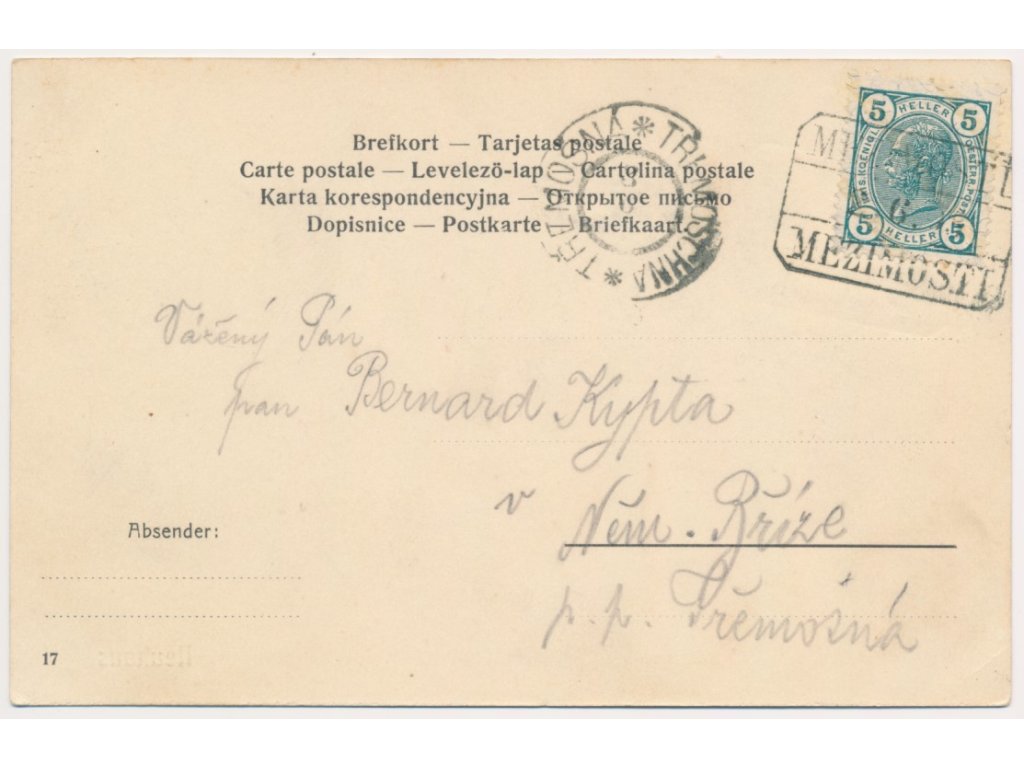 Brefkort — Tarjetas postale
Carte postale — Levelezö-lap — Cartolina postale
Karta korespondencyjna — Открытое письмо
Dopisnice — Postkarte — Briefkaart.
TŘEMOŠNÁ * TŘEMOSCHNA *
5 HELLER 5
5 HELLER 5
6
MEZIMOSTI
Vážený Pán
pan Bernard Kypta
v Něm. Bříze
p. p. Třemošná
Absender:
17